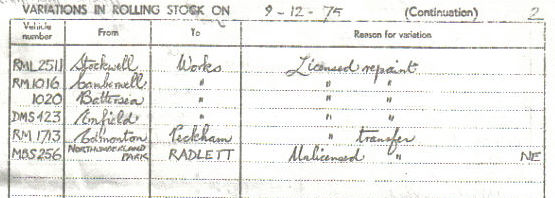 VARIATIONS IN ROLLING STOCK ON 9-12-75 (Continuation) 2
Vehicle number From To Reason for variation
RML2511 Stockwell Works Licensed repaint
RM1016 Camberwell " " "
1020 Battersea " " "
DMS423 Enfield " " "
RM1713 Edmonton Peckham " transfer
MBS256 NORTHUMBERLAND PARK RADLETT Unlicensed " NE